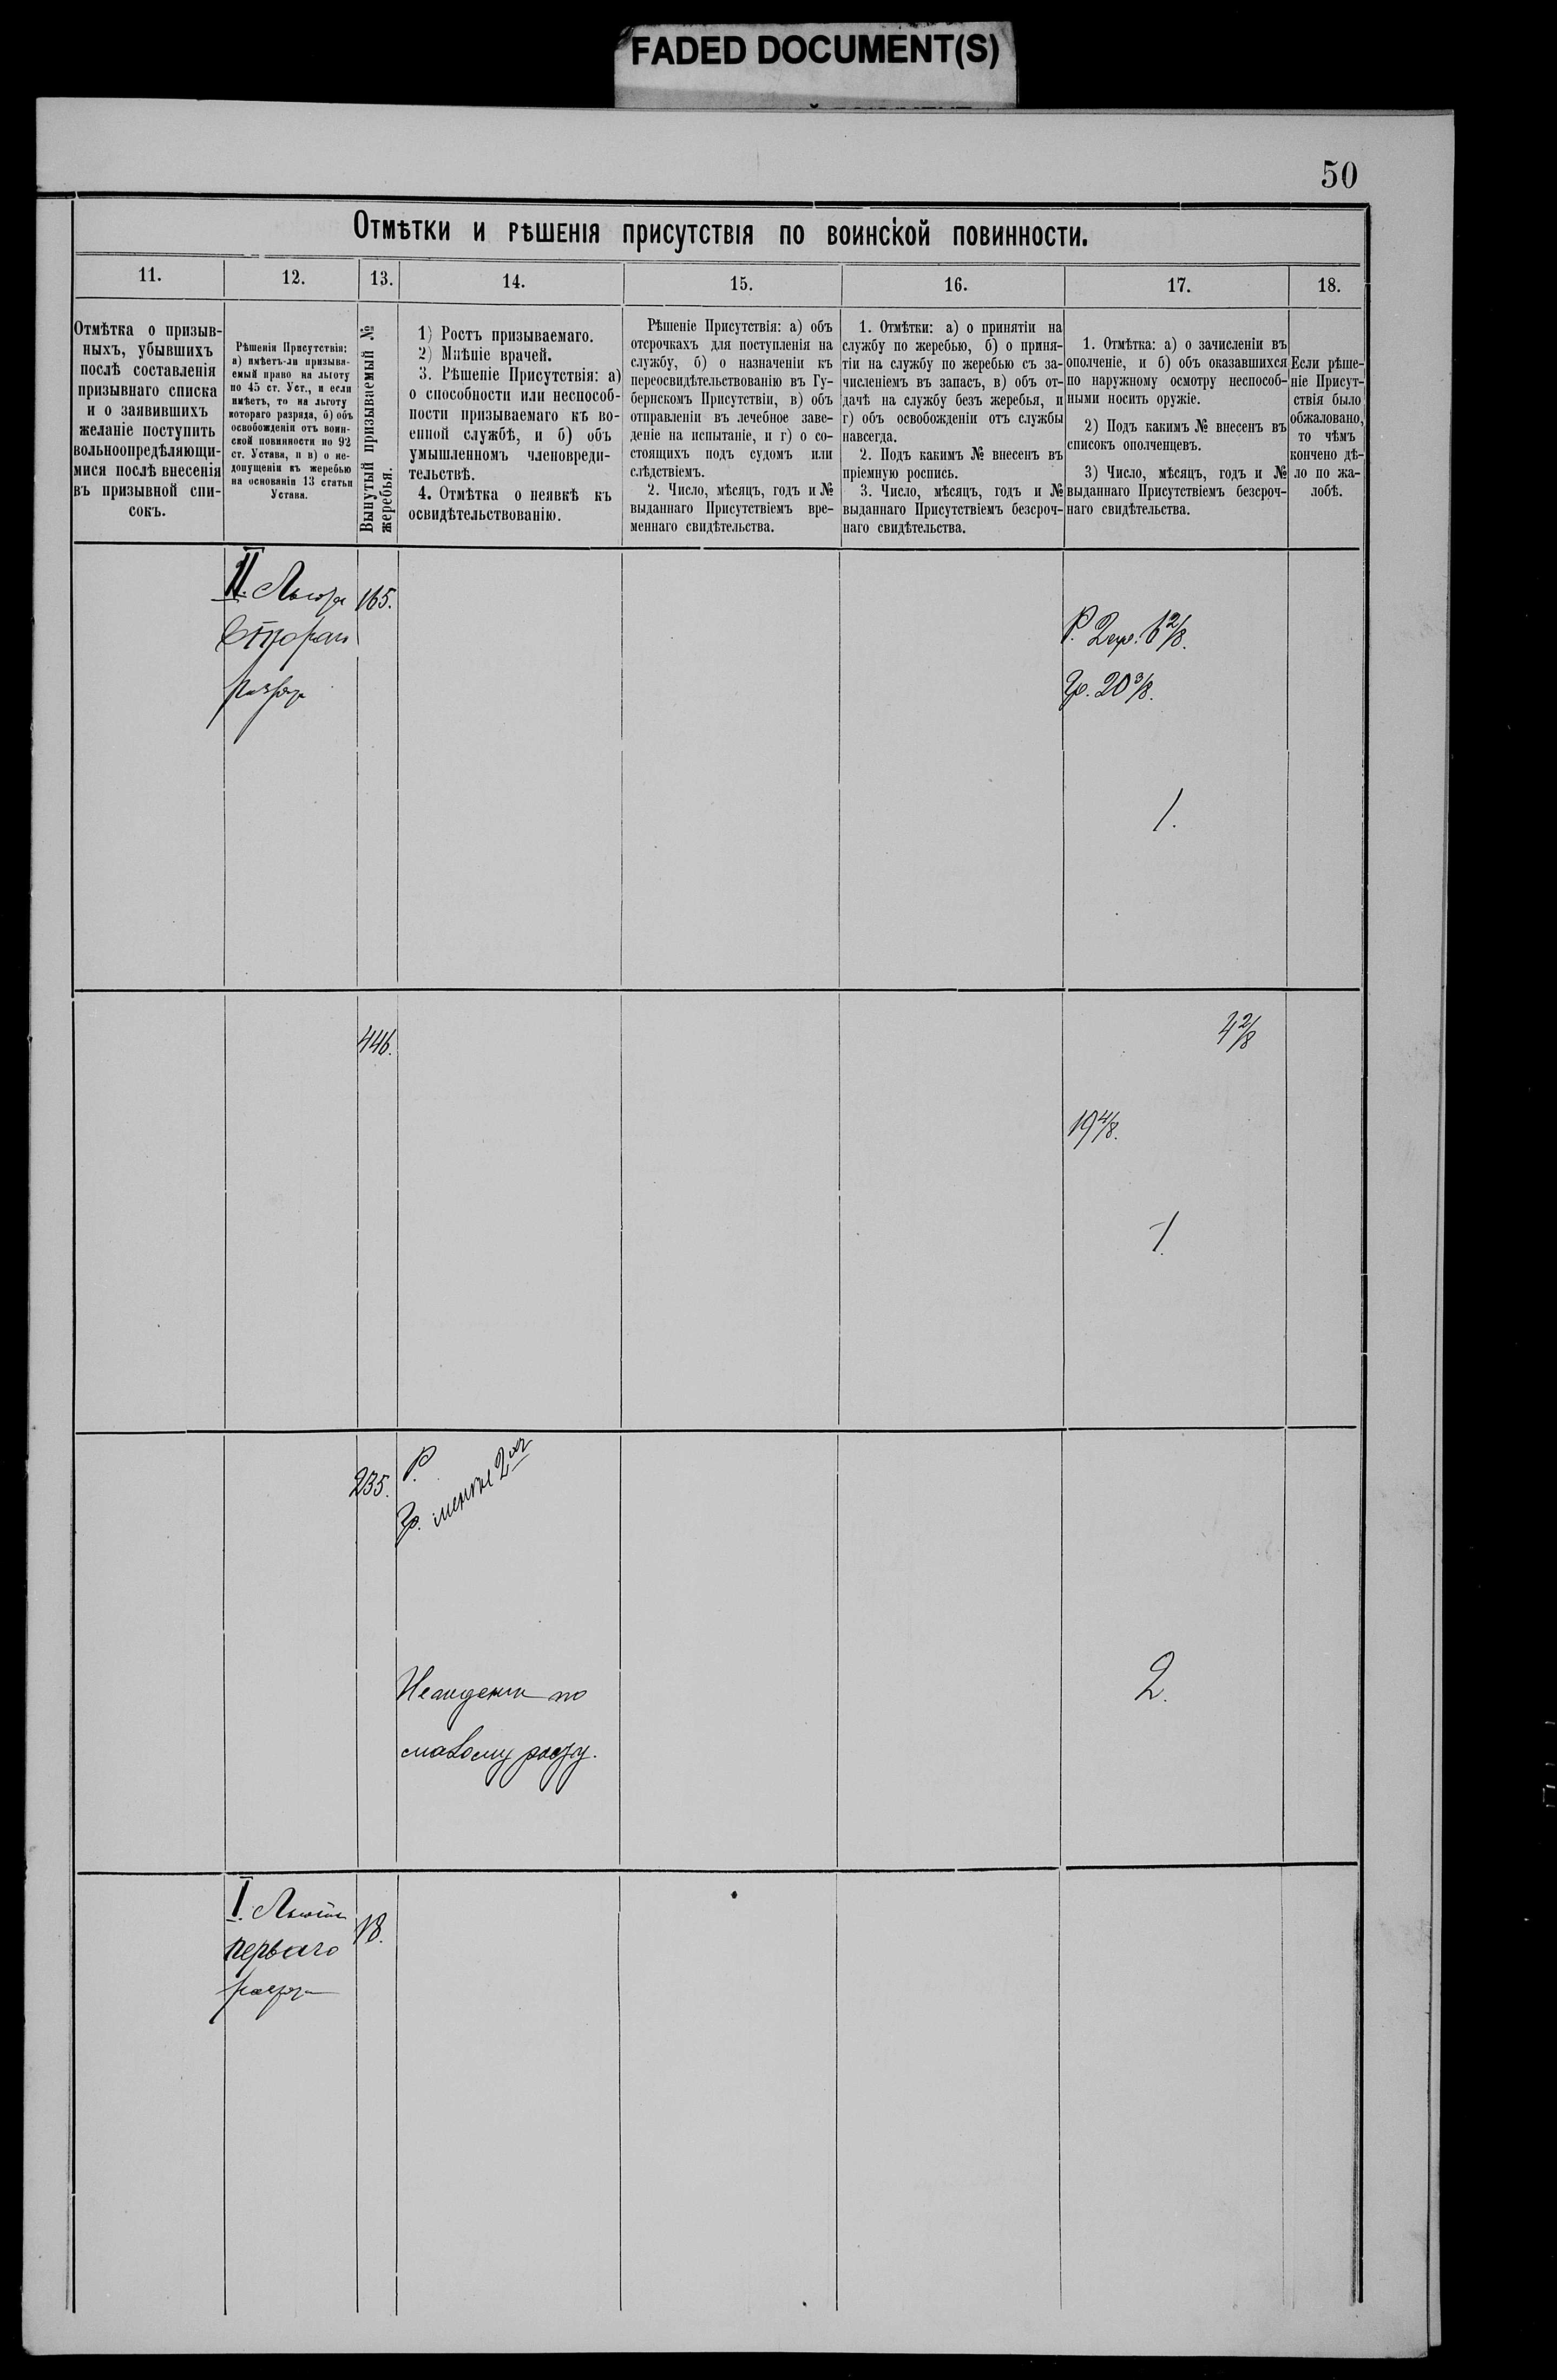 FADED DOCUMENT(S)
50
Отмѣтки и рѣшенія присутствія по воинской повинности.
11.
12.
13.
14.
15.
16.
17.
18.
Отмѣтка о призыв-
ныхъ, убывшихъ
послѣ составленія
призывнаго списка
и о заявившихъ
желаніе поступить
вольноопредѣляющи-
мися послѣ внесенія
въ призывной спи-
сокъ.
Рѣшенія Присутствія:
а) имѣетъ-ли призыва-
емый право на льготу
по 45 ст. Уст., и если
имѣетъ, то на льготу
котораго разряда, б) объ
освобожденіи отъ воин-
ской повинности по 92
ст. Устава, и в) о не-
допущеніи къ жеребью
на основаніи 13 статьи
Устава.
Вынутый призываемый №
жеребья.
1) Ростъ призываемаго.
2) Мнѣніе врачей.
3. Рѣшеніе Присутствія: а)
о способности или неспособ-
ности призываемаго къ во-
енной службѣ, и б) объ
умышленномъ членовреди-
тельствѣ.
4. Отмѣтка о неявкѣ къ
освидѣтельствованію.
Рѣшеніе Присутствія: а) объ
отсрочкахъ для поступленія на
службу, б) о назначеніи къ
переосвидѣтельствованію въ Гу-
бернскомъ Присутствіи, в) объ
отправленіи въ лечебное заве-
деніе на испытаніе, и г) о со-
стоящихъ подъ судомъ или
слѣдствіемъ.
2. Число, мѣсяцъ, годъ и №
выданнаго Присутствіемъ вре-
меннаго свидѣтельства.
1. Отмѣтки: а) о принятіи на
службу по жеребью, б) о приня-
тіи на службу по жеребью съ за-
численіемъ въ запасъ, в) объ от-
дачѣ на службу безъ жеребья, и
г) объ освобожденіи отъ службы
навсегда.
2. Подъ какимъ № внесенъ въ
пріемную роспись.
3. Число, мѣсяцъ, годъ и №
выданнаго Присутствіемъ безсроч-
наго свидѣтельства.
1. Отмѣтка: а) о зачисленіи въ
ополченіе, и б) объ оказавшихся
по наружному осмотру неспособ-
ными носить оружіе.
2) Подъ какимъ № внесенъ въ
списокъ ополченцевъ.
3) Число, мѣсяцъ, годъ и №
выданнаго Присутствіемъ безсроч-
наго свидѣтельства.
Если рѣше-
ніе Присут-
ствія было
обжаловано,
то чѣмъ
кончено дѣ-
ло по жа-
лобѣ.
II. 165.
Р. 2 6 2/8.
Гр. 20 3/8.
1.
446.
4 2/8
19 4/8.
1.
235.
Р.
Гр. менѣе 2
по
малому росту.
2.
I. 18.
перваго